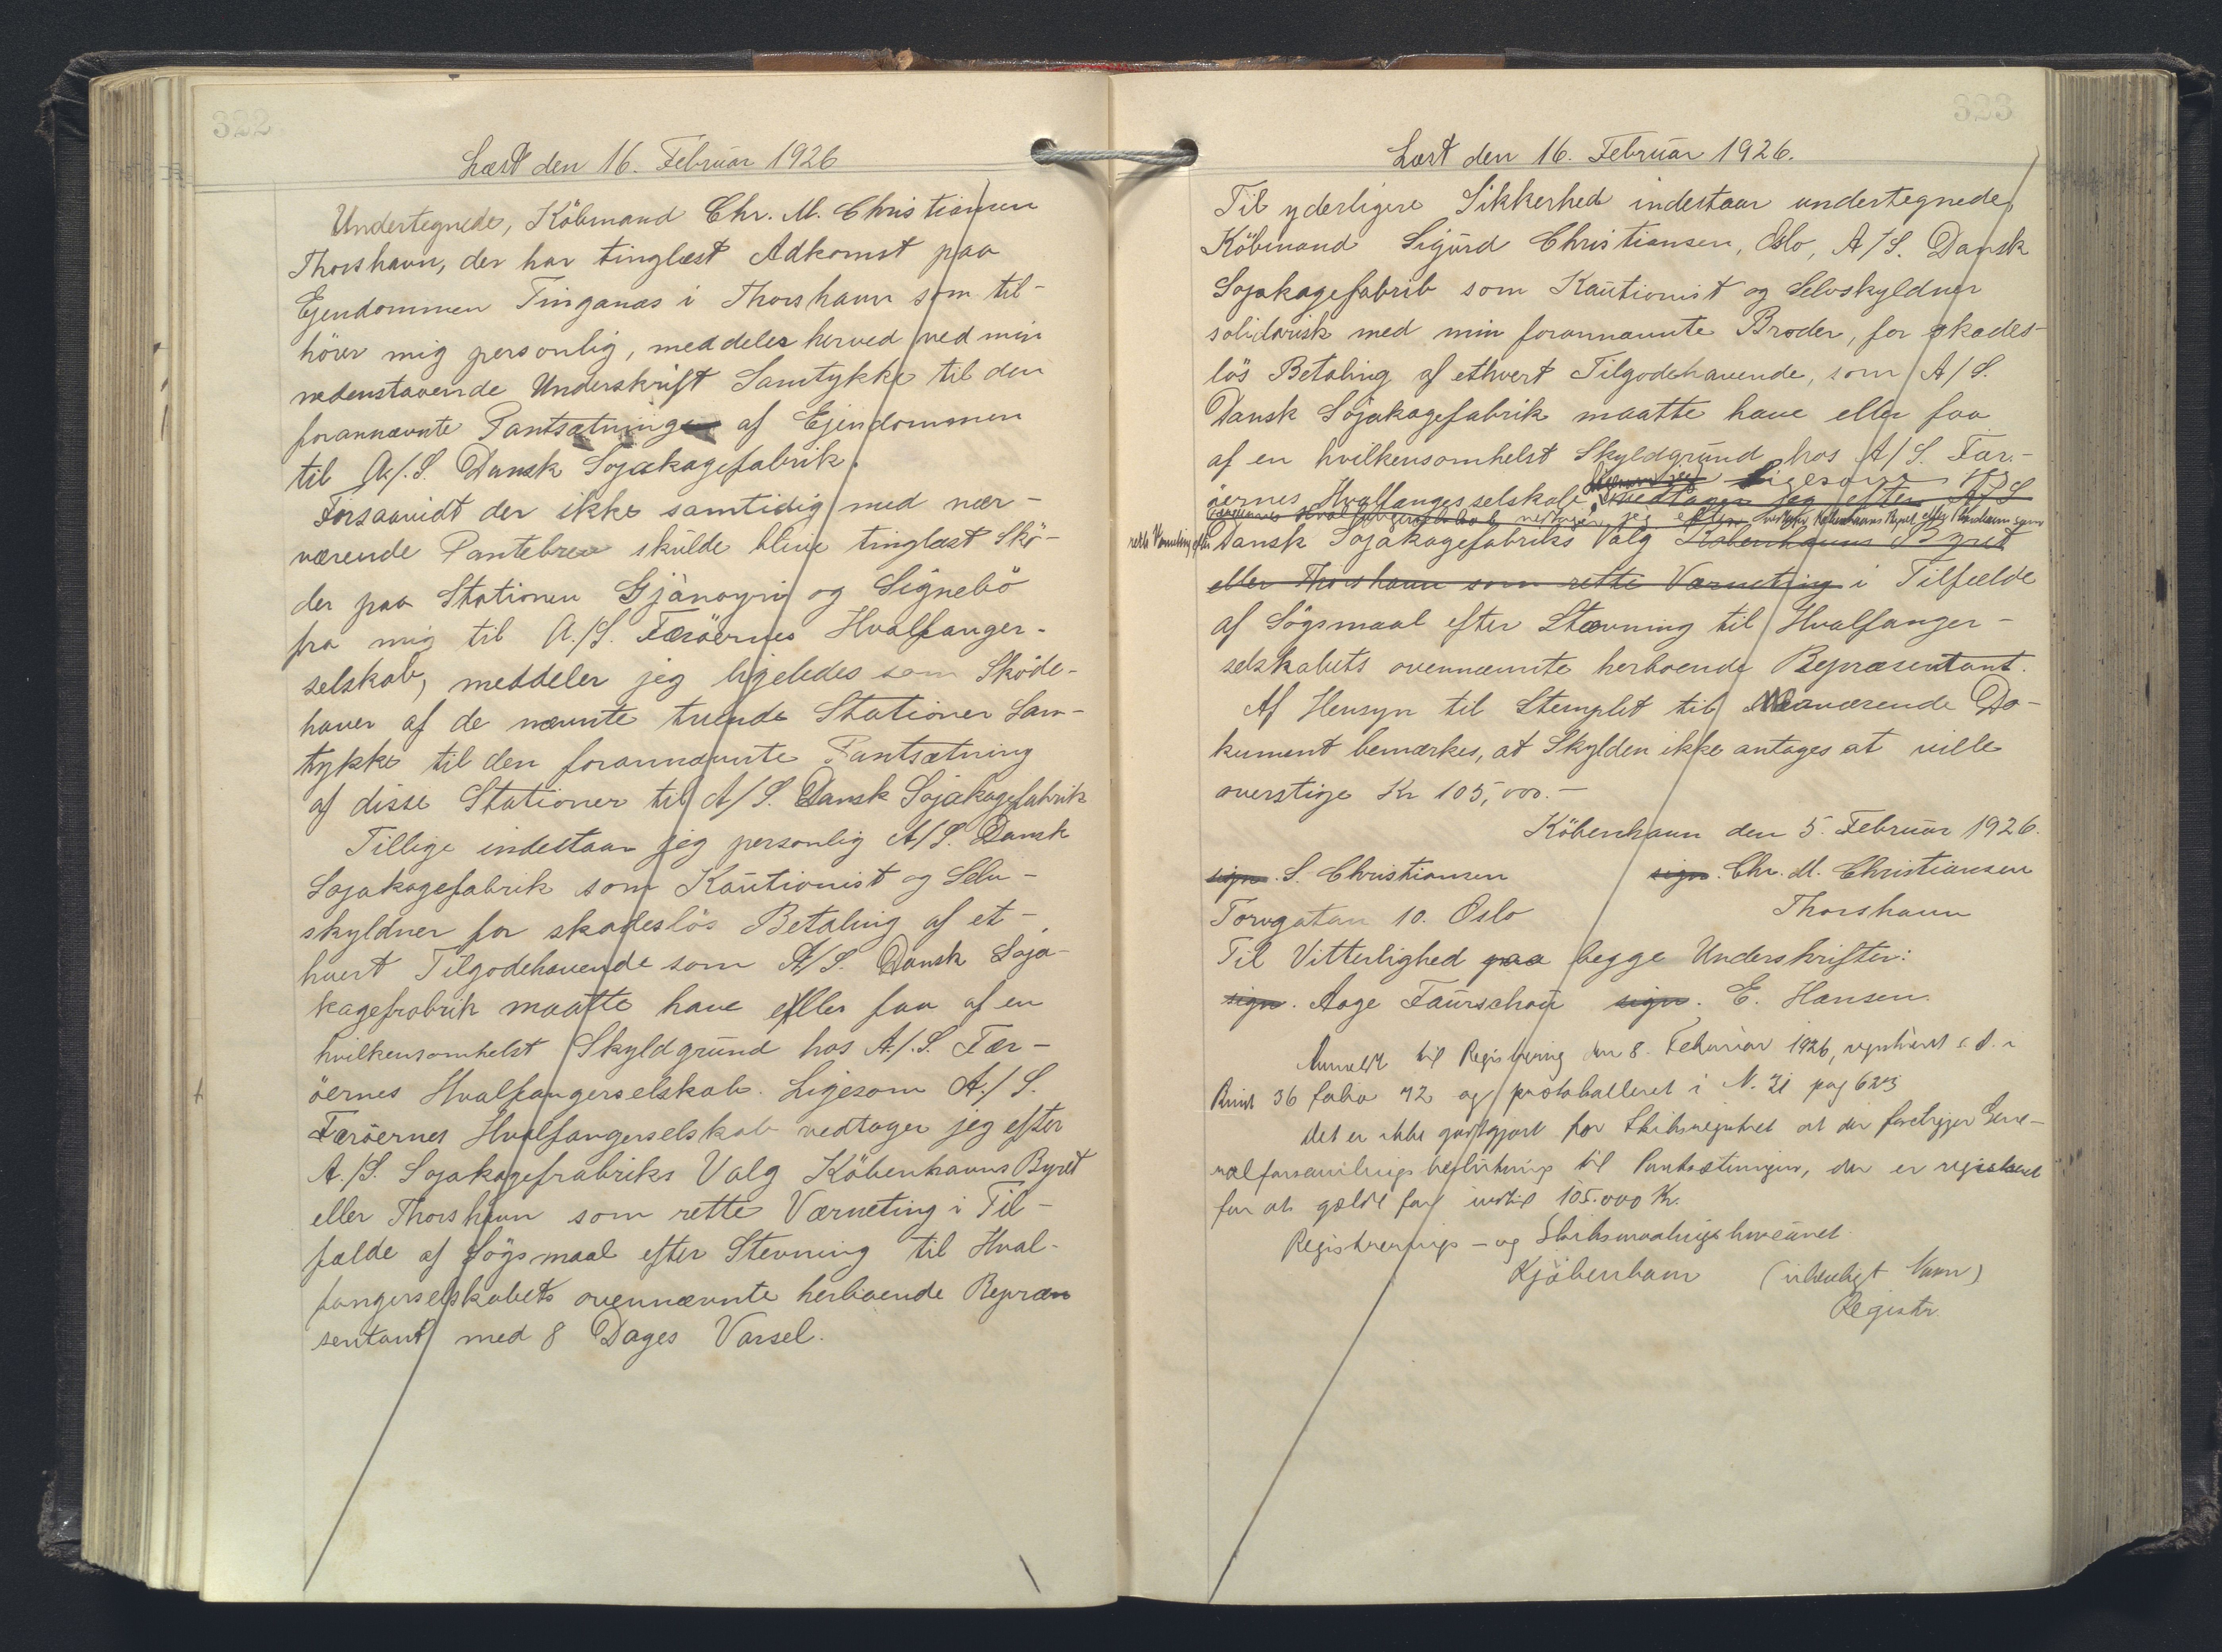 322
Læst den 16. Februar 1926
Undertegnede, Köbmand Chr. M. Christiansen
Thorshavn, der har tinglæst Adkomst paa
Ejendommen Tinganæs i Thorshavn som til-
hörer mig personlig, meddeles herved ved min
nedenstaaende Underskrift Samtykke til den
forannævnte Pantsætning af Ejendommen
til A/S. Dansk Sojakagefabrik.
Forsaavidt der ikke samtidig med nær-
værende Pantebrev skulde blive tinglæst Skö-
der paa Stationen Gjànoyri og Signebö
fra mig til A./S. Færöernes Hvalfanger-
selskab, meddeler jeg ligeledes som Sköde-
haver af de nævnte tvende Stationer Sam-
tykke til den forannævnte Pantsætning
af disse Stationer til A/S. Dansk Sojakagefabrik
Tillige indestaar jeg personlig A/S. Dansk
Sojakagefabrik som Kautionist og Selv-
skyldner for skadeslös Betaling af et-
hvert Tilgodehavende som A/S. Dansk Soja-
kagefabrik maatte have eller faa af en
hvilkensomhelst Skyldgrund hos A./.S. Fær-
öernes Hvalfangerselskab. Ligesom A./S.
Færöernes Hvalfangerselskab vedtager jeg efter
A./S. Sojakagefrabriks Valg Köbenhavns Byret
eller Thorshavn som rette Værneting i Til-
fælde af Sögsmaal efter Stevning til Hval-
fangerselskabets ovennævnte herboende Repræn
sentant med 8 Dages Varsel.
323
Læst den 16. Februar 1926.
Til yderligere Sikkerhed indestaar undertegnede,
Köbmand Sigurd Christiansen, Oslo, A/S. Dansk
Sojakagefabrik som Kautionist og Selvskyldner
solidarisk med min forannævnte Broder, for skades-
lös Betaling af ethvert Tilgodehavende, som A/S.
Dansk Sojakagefabrik maatte have eller faa
af en hvilkensomhelst Skyldgrund hos A/S. Fær-
öernes Hvalfangerselskab Ligesom A/S
vedtager jeg efter A/S
vedtager jeg efter Köbenhavns Byret eller Thorshavn som
rette Værneting efter Dansk Sojakagefabriks Valg Köbenhavns Byret
eller Thorshavn som rette Værneting i Tilfælde
af Sögsmaal efter Stævning til Hvalfanger-
selskabets ovennævnte herboende Repræsentant.
Af Hensyn til Stemplet til Nærværende Do-
kument bemærkes, at Skylden ikke antages at ville
overstige Kr 105,000.-
Köbenhavn den 5. Februar 1926.
sign. S. Christiansen sign. Chr. M. Christiansen
Torvgatan 10. Oslo Thorshavn
Til Vitterlighed paa begge Underskrifter:
sign. Aage Faurschou sign. E. Hansen.
Anmeldt til Registrering den 8. Februar 1926, registreret s. D. i
Bind 36 folio 72 og protokolleret i N. 21 pag 623
Det er ikke godtgjort for Skibsregistret at der foreligger Gene-
ralforsamlingsbeslutning til Pantsætningen, der er registreret
for at gælde for indtil 105.000 Kr.
Registrerings- og Skibsmaalingsbureauet.
Kjöbenhavn (ulæseligt Navn)
Registr.